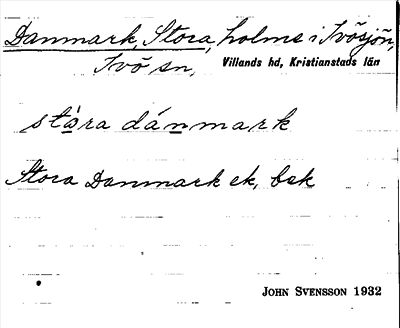 Danmark, Stora, holme i Ivösjön,
Ivö sn, Villands hd, Kristianstads län
stòra dánmark
Stora Danmark ek, bek
JOHN SVENSSON 1932